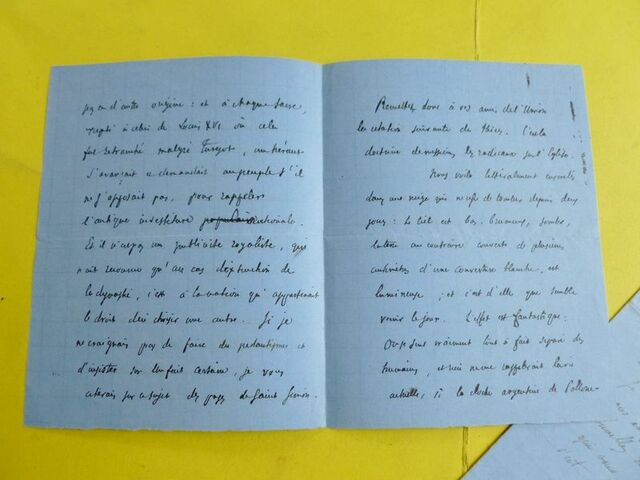 pas d'autre origine : et à chaque sacre,
jusqu'à celui de Louis XVI où cela
fut retranché malgré Turgot, un héraut
s'avançait et demandait au peuple s'il
ne s'opposait pas, pour rappeler
l'antique investiture nationale.
Et il n'est pas un publiciste royaliste, qui
n'ait reconnu qu'au cas d'extinction de
la dynastie, c'est à la nation qu'appartenait
le droit d'en choisir une autre. Si je
ne craignais pas de faire du pédantisme et
d'insister sur un fait certain, je vous
citerais sur ce sujet des pages de Saint Simon.
Remettez donc à vos amis de l'Union
la citation suivante de Thiers. C'est la
doctrine de messieurs les radicaux sur l'Eglise.
Nous voilà littéralement ensevelis
dans une neige qui ne cesse de tomber depuis deux
jours : le ciel est bas, brumeux, sombre,
la terre au contraire couverte de plusieurs
centimètres d'une couverture blanche, est
lumineuse ; et c'est d'elle que semble
venir le jour. L'effet est fantastique.
On se sent vraiment tout à fait séparé des
humains, et rien ne me rappellerait
actuelle, si la cloche argentine de